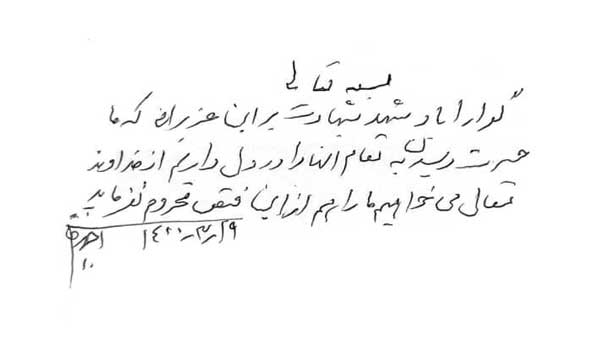 بسمه تعالی
گوارا باد شهد شهادت بر این عزیزانی که ما
حسرت رسیدن به مقام آنها را در دل داریم از خداوند
متعال می خواهیم ما را هم از این فیض محروم نفرماید
۱۴۰۰/۳/۲۹